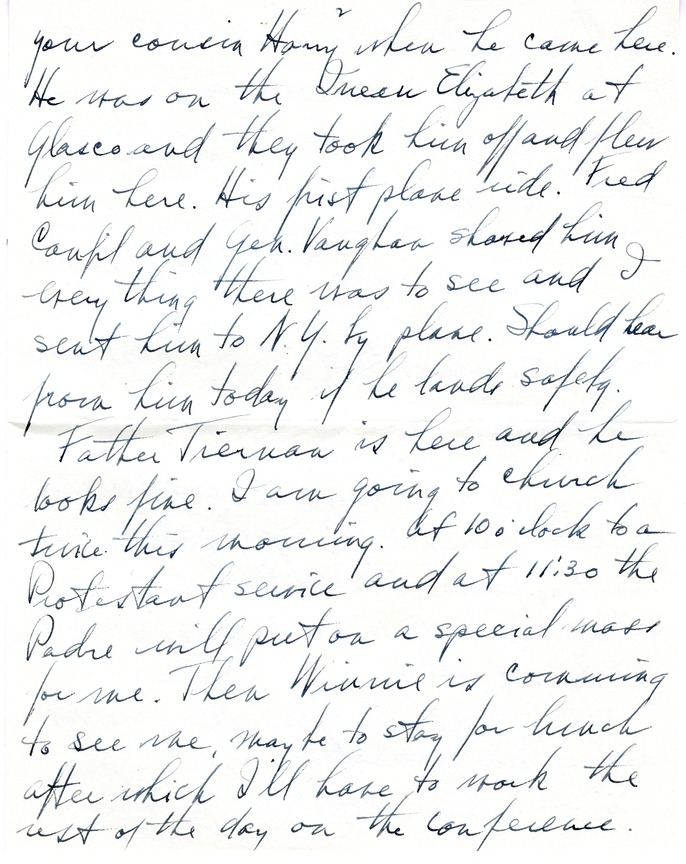 your cousin Harry when he came here.
He was on the Queen Elizabeth at
Glasco and they took him off and flew
him here. His first plane ride. Fred
Canfil and Gen. Vaughan showed him
everything there was to see and I
sent him to N.Y. by plane. Should hear
from him today if he lands safely.
Father Tiernan is here and he
looks fine. I am going to church
twice this morning. At 10 o'clock to a
Protestant service and at 11:30 the
Padre will put on a special mass
for me. Then Winnie is comming
to see me, maybe to stay for lunch
after which I'll have to work the
rest of the day on the conference.